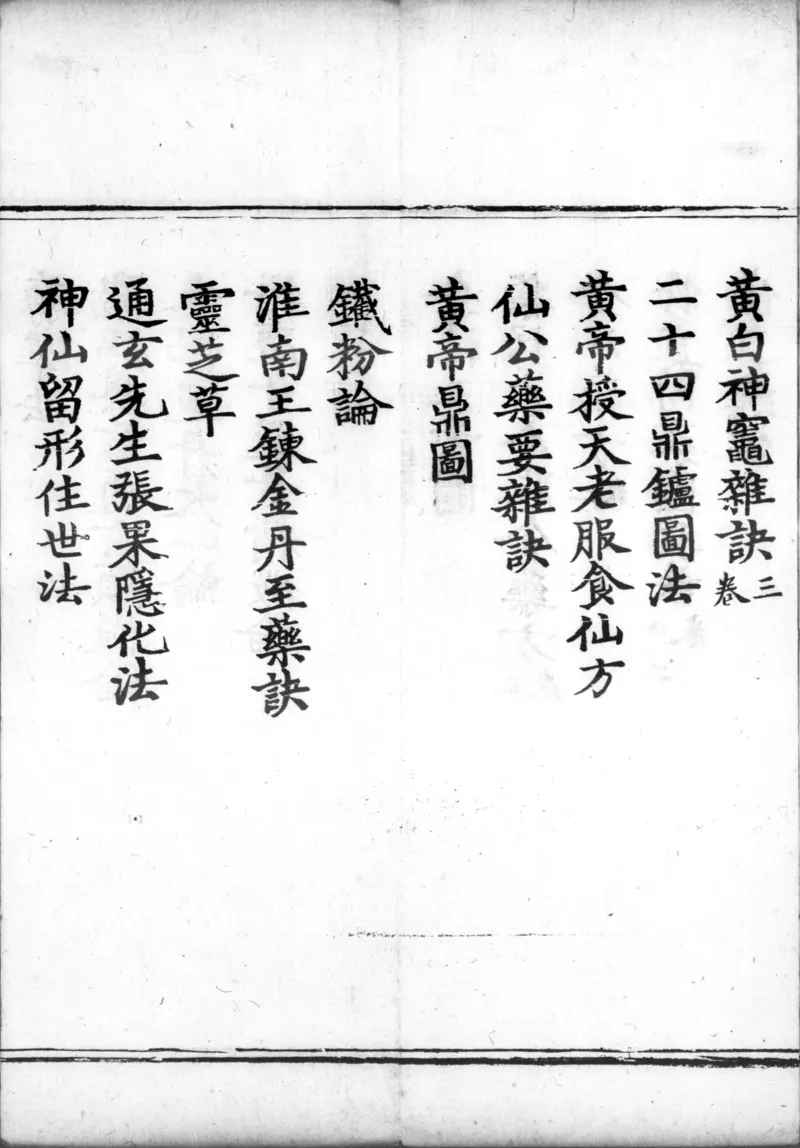 黃白神竈雜訣三卷
二十四鼎鑪圖法
黃帝授天老服食仙方
仙公藥要雜訣
黃帝鼎圖
鐵粉論
淮南王鍊金丹至藥訣
靈芝草
通玄先生張果隱化法
神仙留形住世法